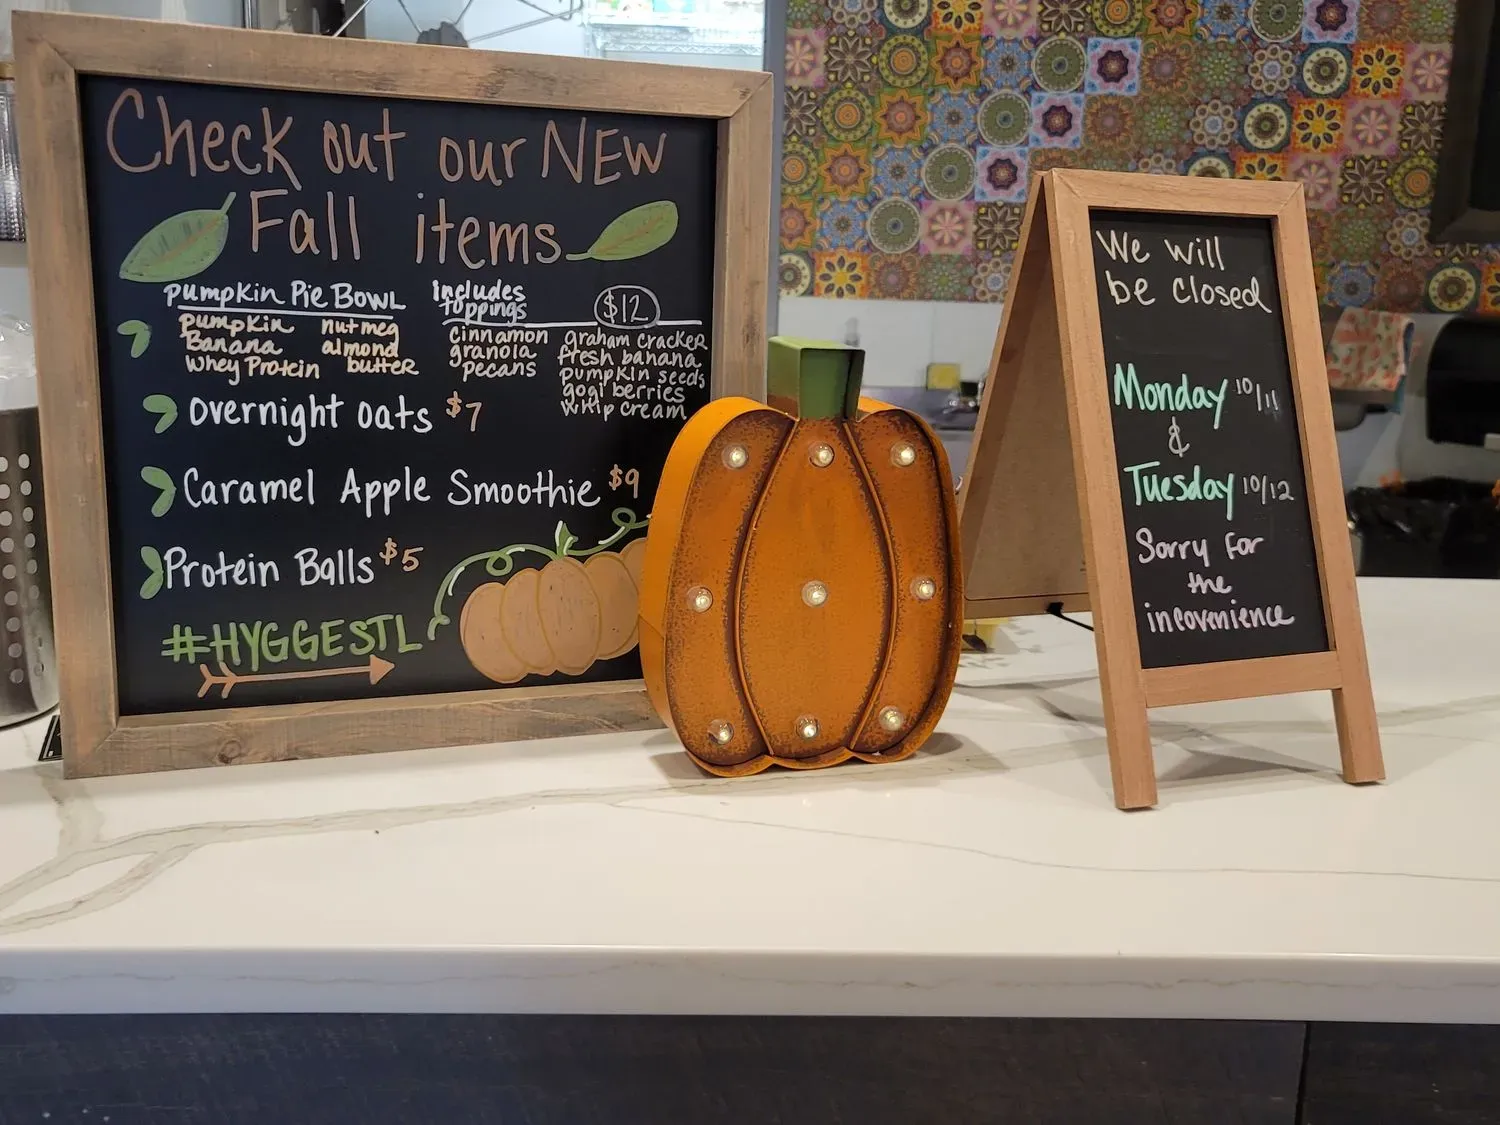 Check out our NEW
Fall items
Pumpkin Pie Bowl
Includes
toppings
$12
Pumpkin
Banana
Whey Protein
nutmeg
almond
butter
cinnamon
granola
pecans
graham cracker
fresh banana
pumpkin seeds
gogi berries
whip cream
Overnight oats $7
Caramel Apple Smoothie $9
Protein Balls $5
#HYGGESTL
We will
be closed
Monday 10/11
&
Tuesday 10/12
Sorry for
the
incovenience